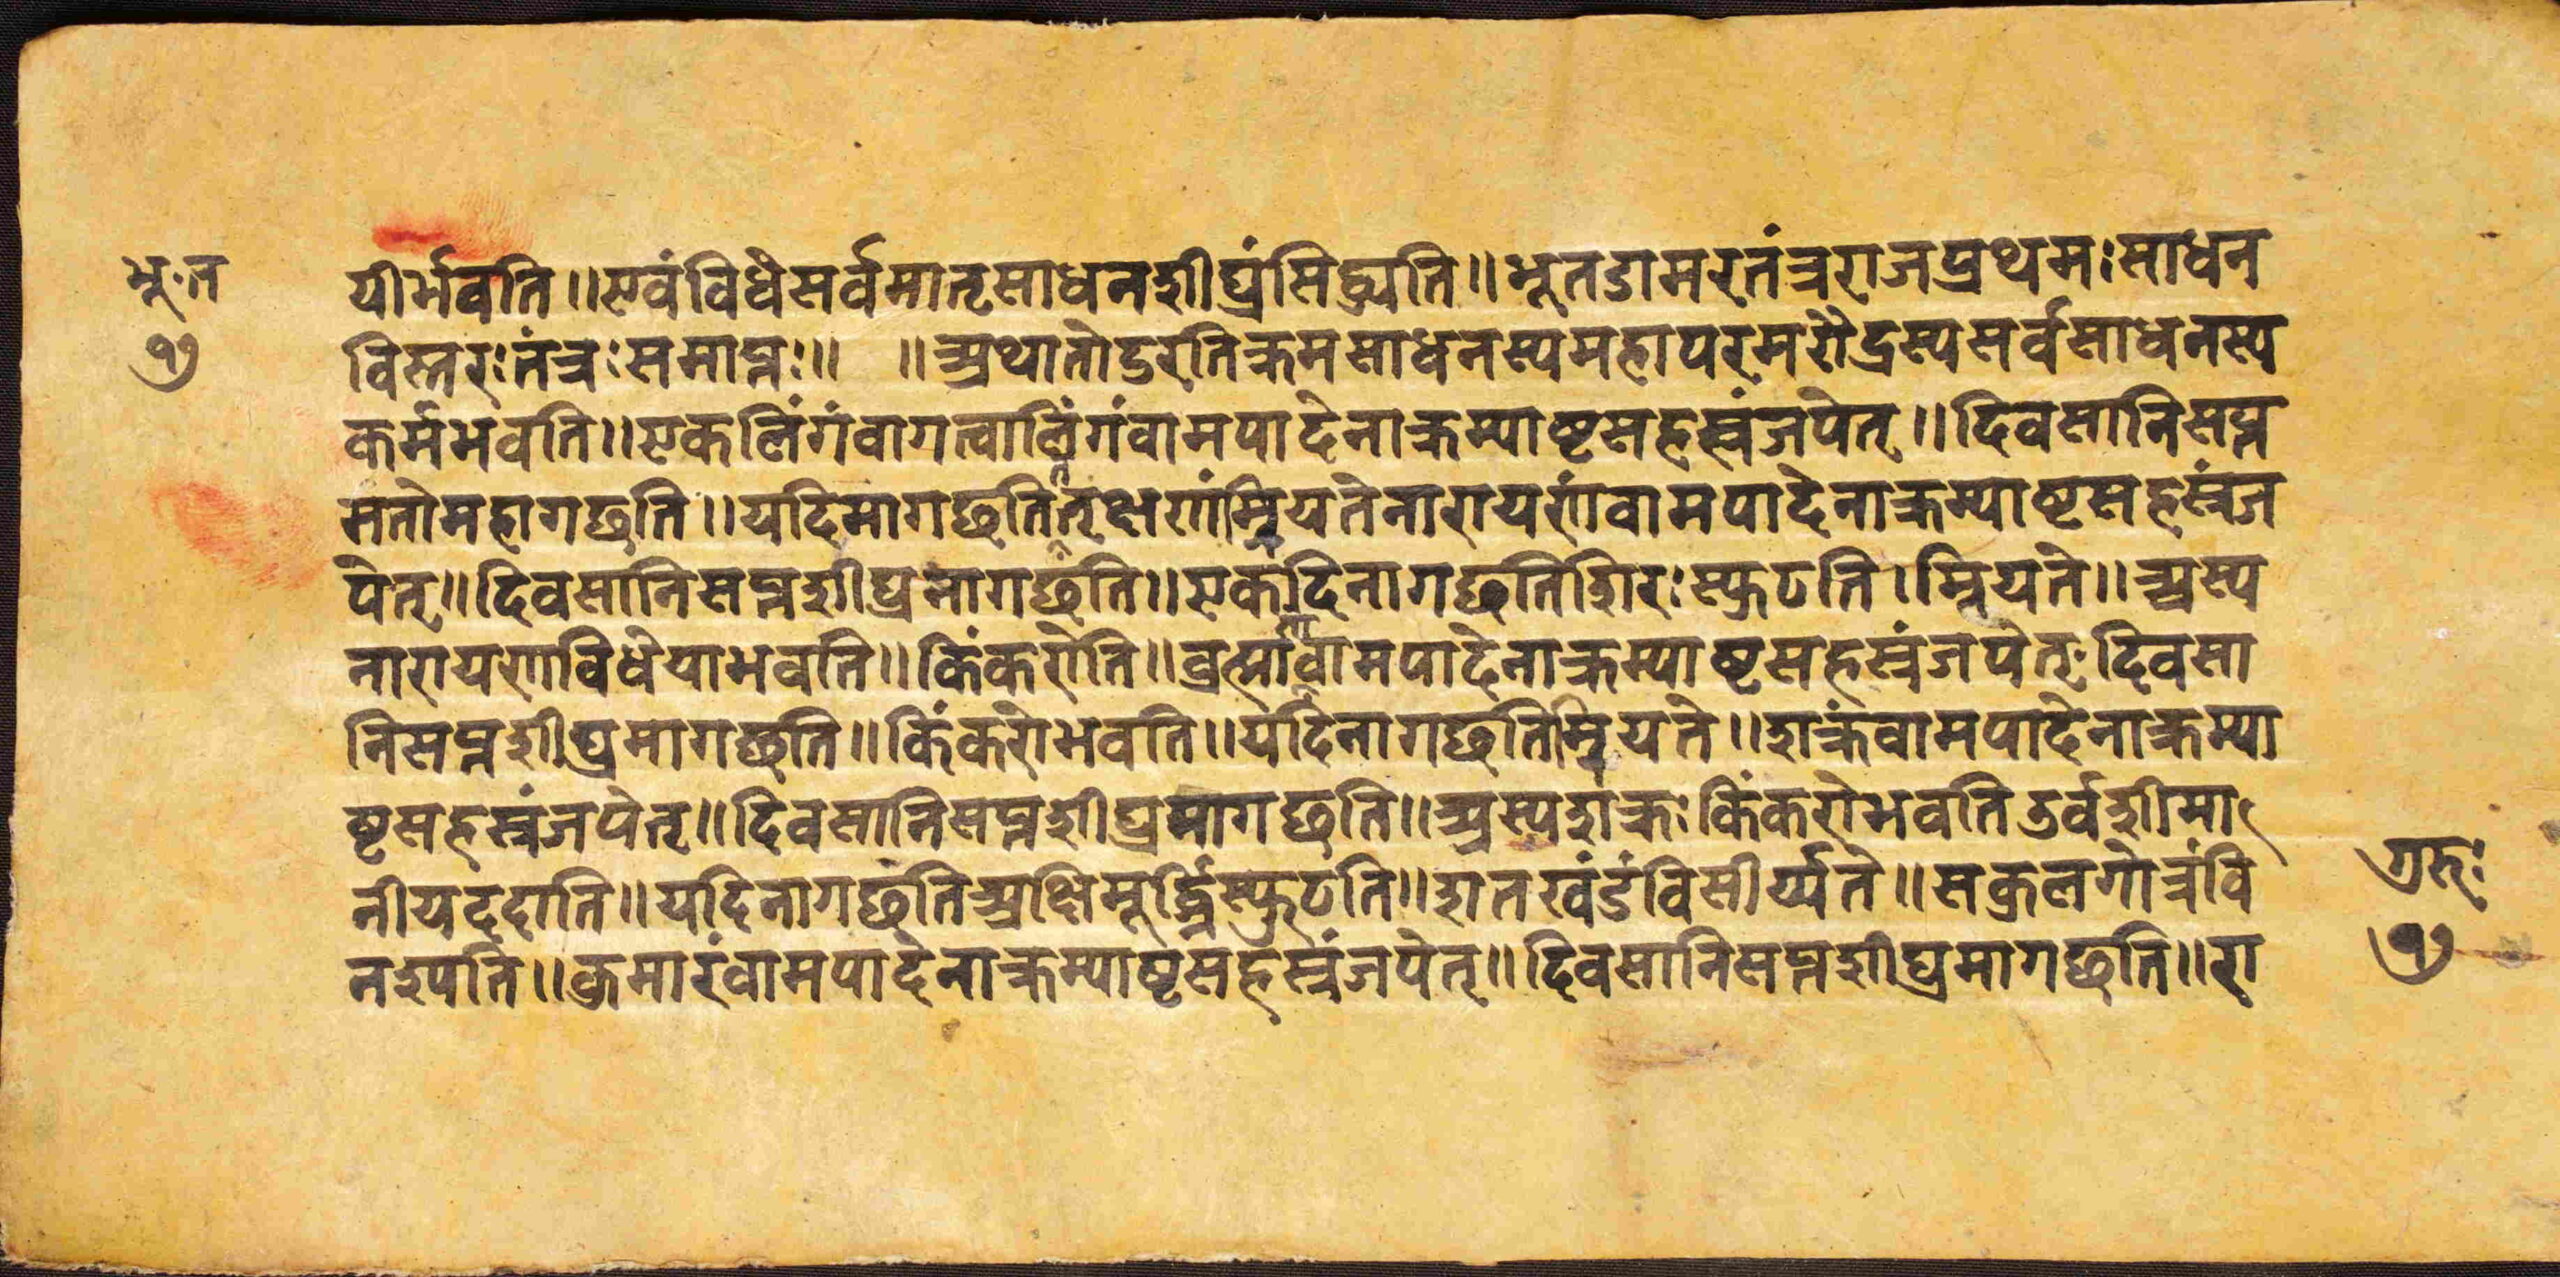 भू॰त
यीर्भवति॥एवंविधैसर्वमातृसाधनशीघ्रंसिद्ध्यति॥भूतडामरतंत्रराजप्रथमःसाधन
७
विस्तरःतंत्रःसमाप्तः॥ ॥अथातोदुरतिक्रमसाधनस्यमहापरमरौद्रस्यसर्वसाधनस्य
कर्मभवति॥एकलिंगंवागत्वालिंगंवामपादेनाक्रम्याष्टसहस्रंजपेत्॥दिवसानिसप्त
मतोमहागछति॥यदिमागछतितत्क्षणांम्रियतेनारायणंवामपादेनाक्रम्याष्टसहस्रंज
पेत्॥दिवसानिसप्तशीघ्रनागछति॥एकदिनागछतिशिरःस्फुटति।म्रियते॥अस्य
नारायणविधेयाभवति॥किंकरोति॥ब्रह्मांवामपादेनाक्रम्याष्टसहस्रंजपेत्॰दिवसा
निसप्तशीघ्रमागछति॥किंकरोभवति॥यदिनागछतिम्रियते॥शक्रंवामपादेनाक्रम्या
ष्टसहस्रंजपेत्॥दिवसानिसप्तशीघ्रमागछति॥अस्यशक्रःकिंकरोभवतिउर्वशीमा
गुरुः
नीयददाति॥यदिनागछतिअक्षिमूर्द्ध्निस्फुटति॥शतखंडंविसीर्य्यते॥सकुलगोत्रंवि
७
नश्यति॥कुमारंवामपादेनाक्रम्याष्टसहस्रंजपेत्॥दिवसानिसप्तशीघ्रमागछति॥रा